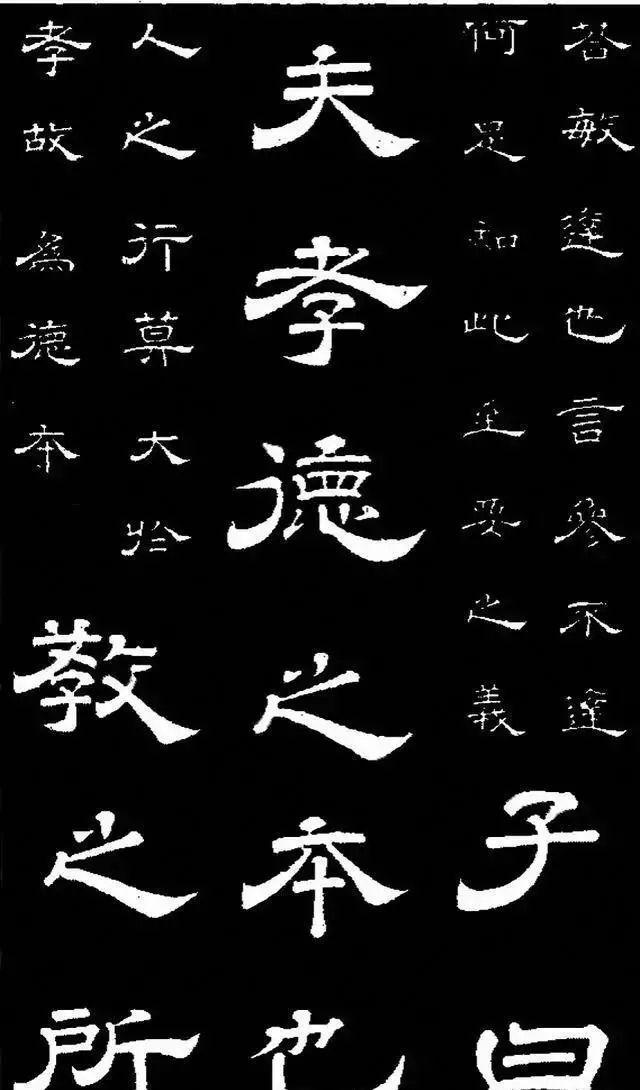 荅敏達也言參不達
何足知此至要之義
子曰
夫孝德之本也
人之行莫大於
孝故為德本
教之所